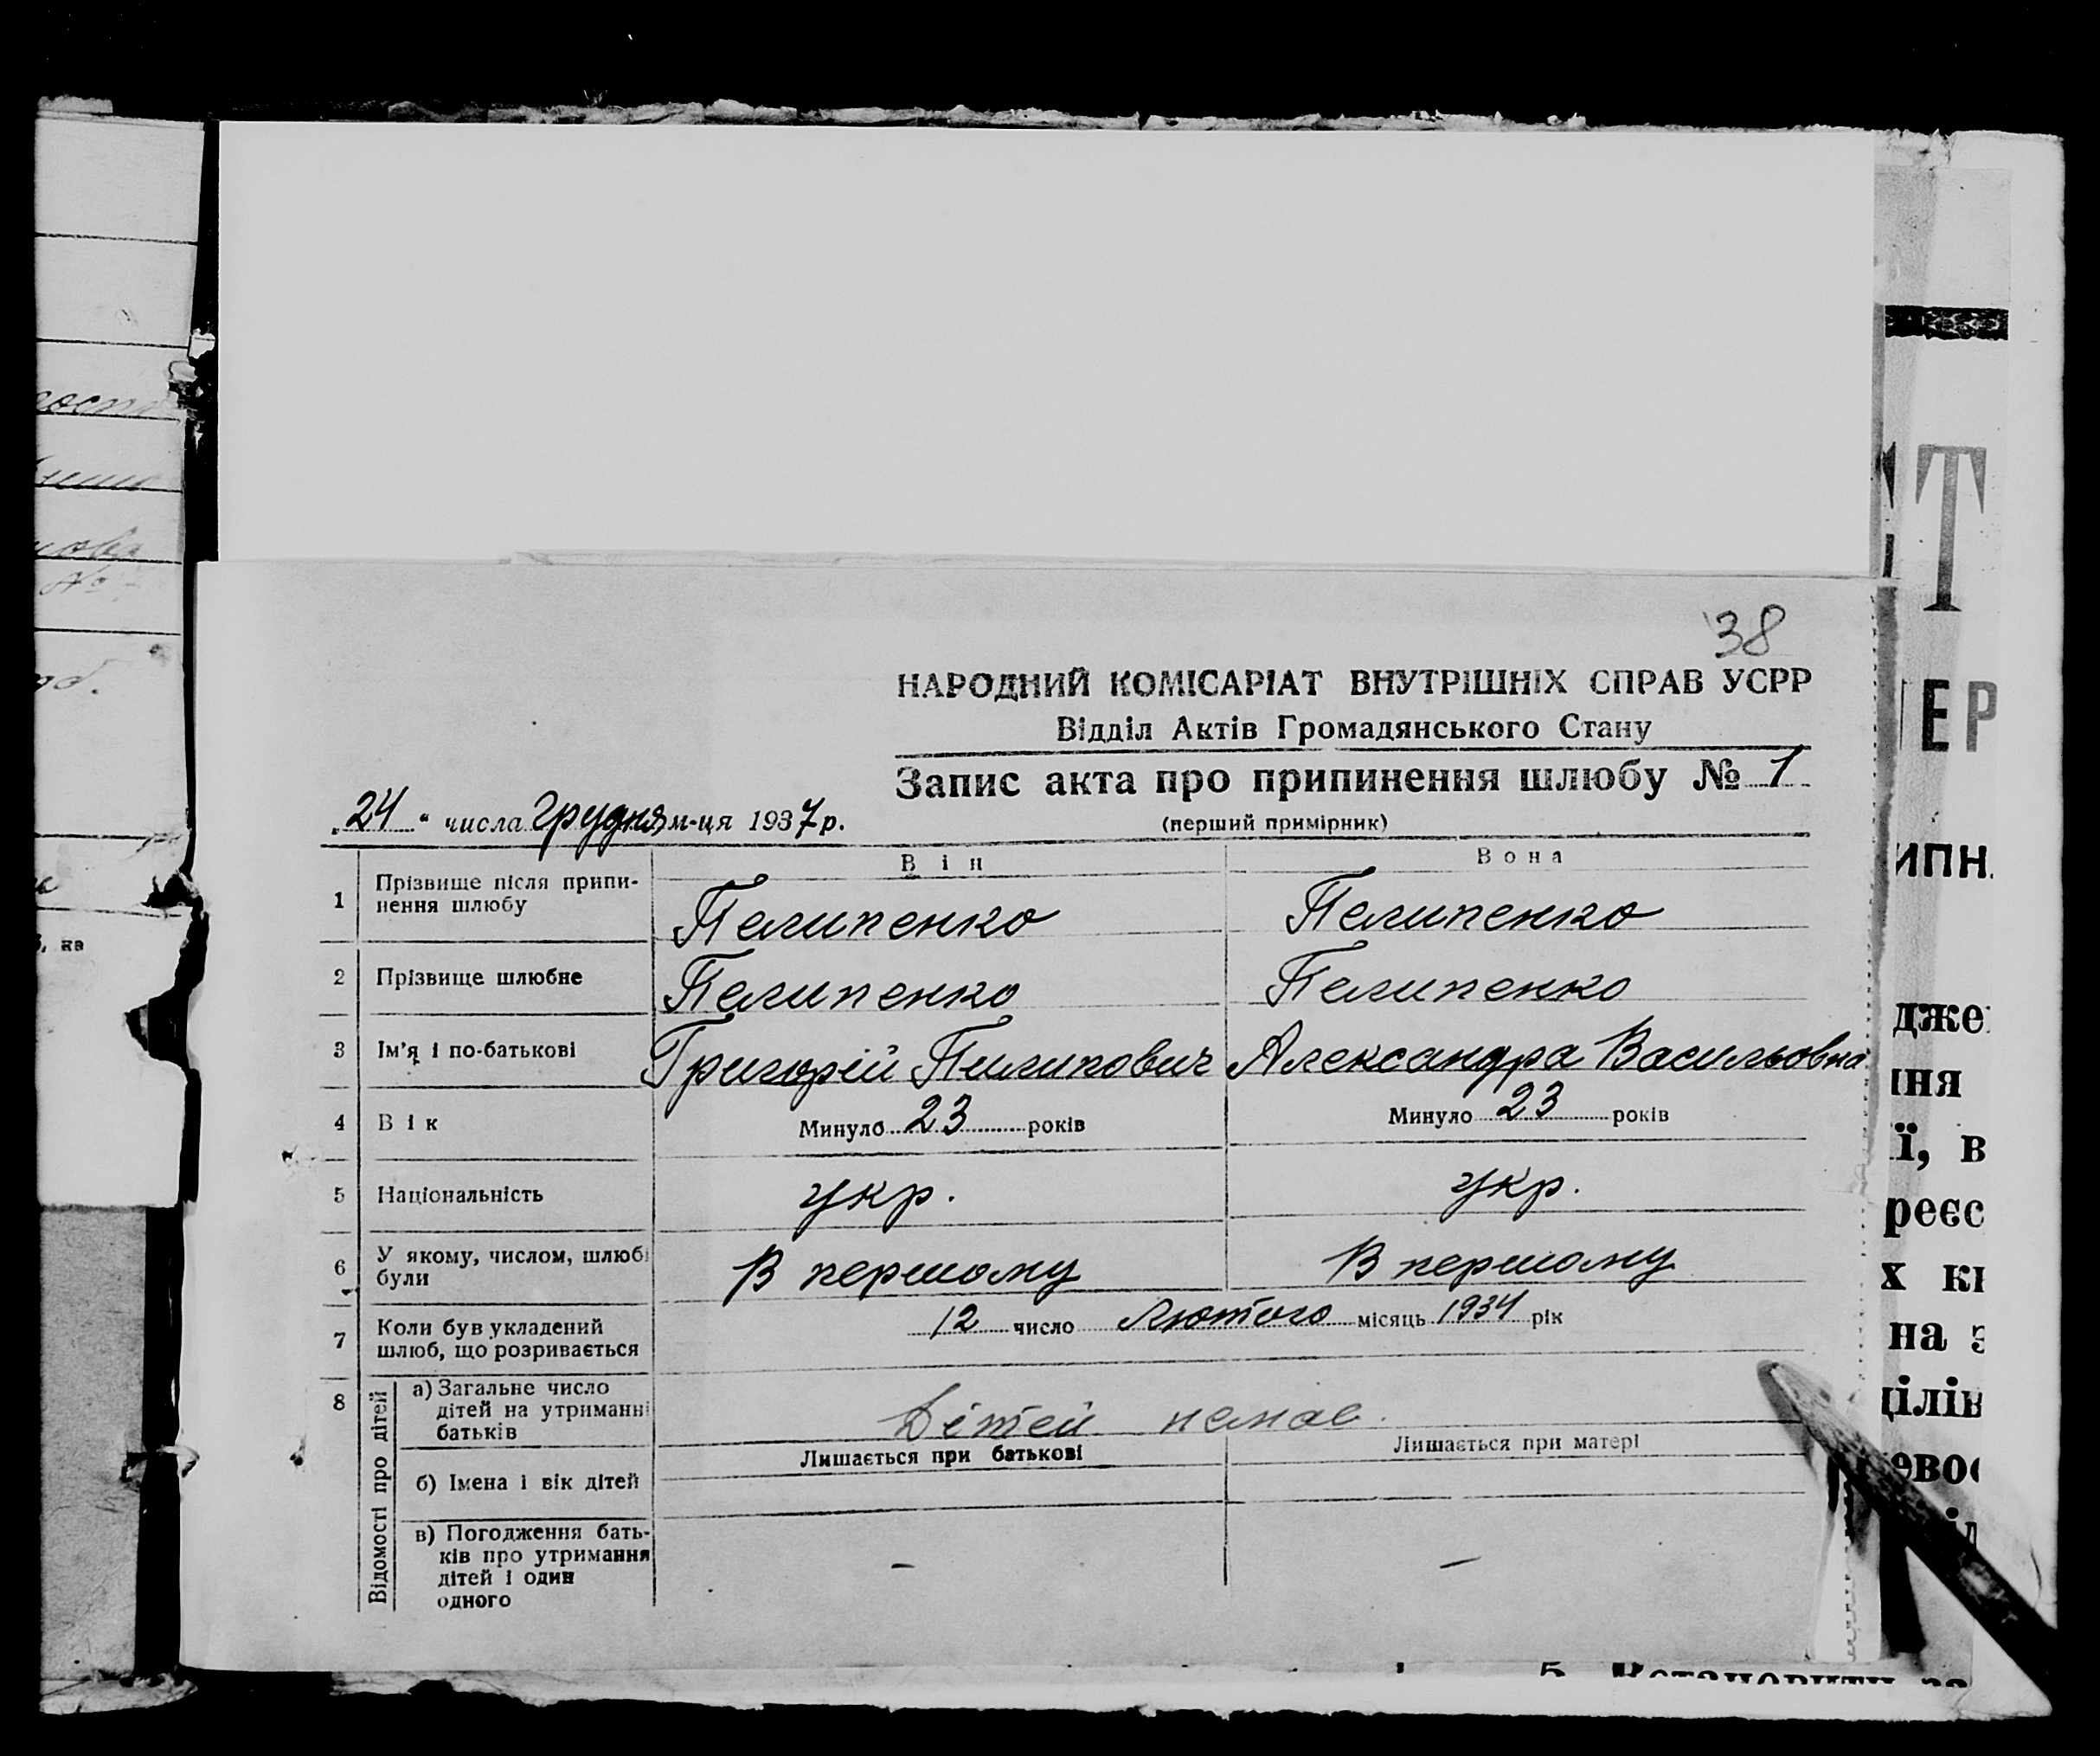 38
НАРОДНИЙ КОМІСАРІАТ ВНУТРІШНІХ СПРАВ УСРР
Відділ Актів Громадянського Стану
Запис акта про припинення шлюбу № 1
(перший примірник)
„24“ числа Грудня м-ця 1937 р.
Він Вона
1 Прізвище після припи-
нення шлюбу
Пелипенко Пелипенко
2 Прізвище шлюбне Пелипенко Пелипенко
3 Ім'я і по-батькові Григорій Пилипович Александра Васильовна
4 Вік Минуло 23 років Минуло 23 років
5 Національність укр. укр.
6 У якому, числом, шлюбі
були
В першому В першому
7 Коли був укладений
шлюб, що розривається
12 число Лютого місяць 1934 рік
8 Відомості про дітей
а) Загальне число
дітей на утриманні
батьків
Дітей немає.
Лишається при батькові Лишається при матері
б) Імена і вік дітей
в) Погодження бать-
ків про утримання
дітей і один
одного
– –
, на
Т
ЕР
ипн.
дже
ння
ї, в
реєс
х кн
на з
ділів
5. Встановити за